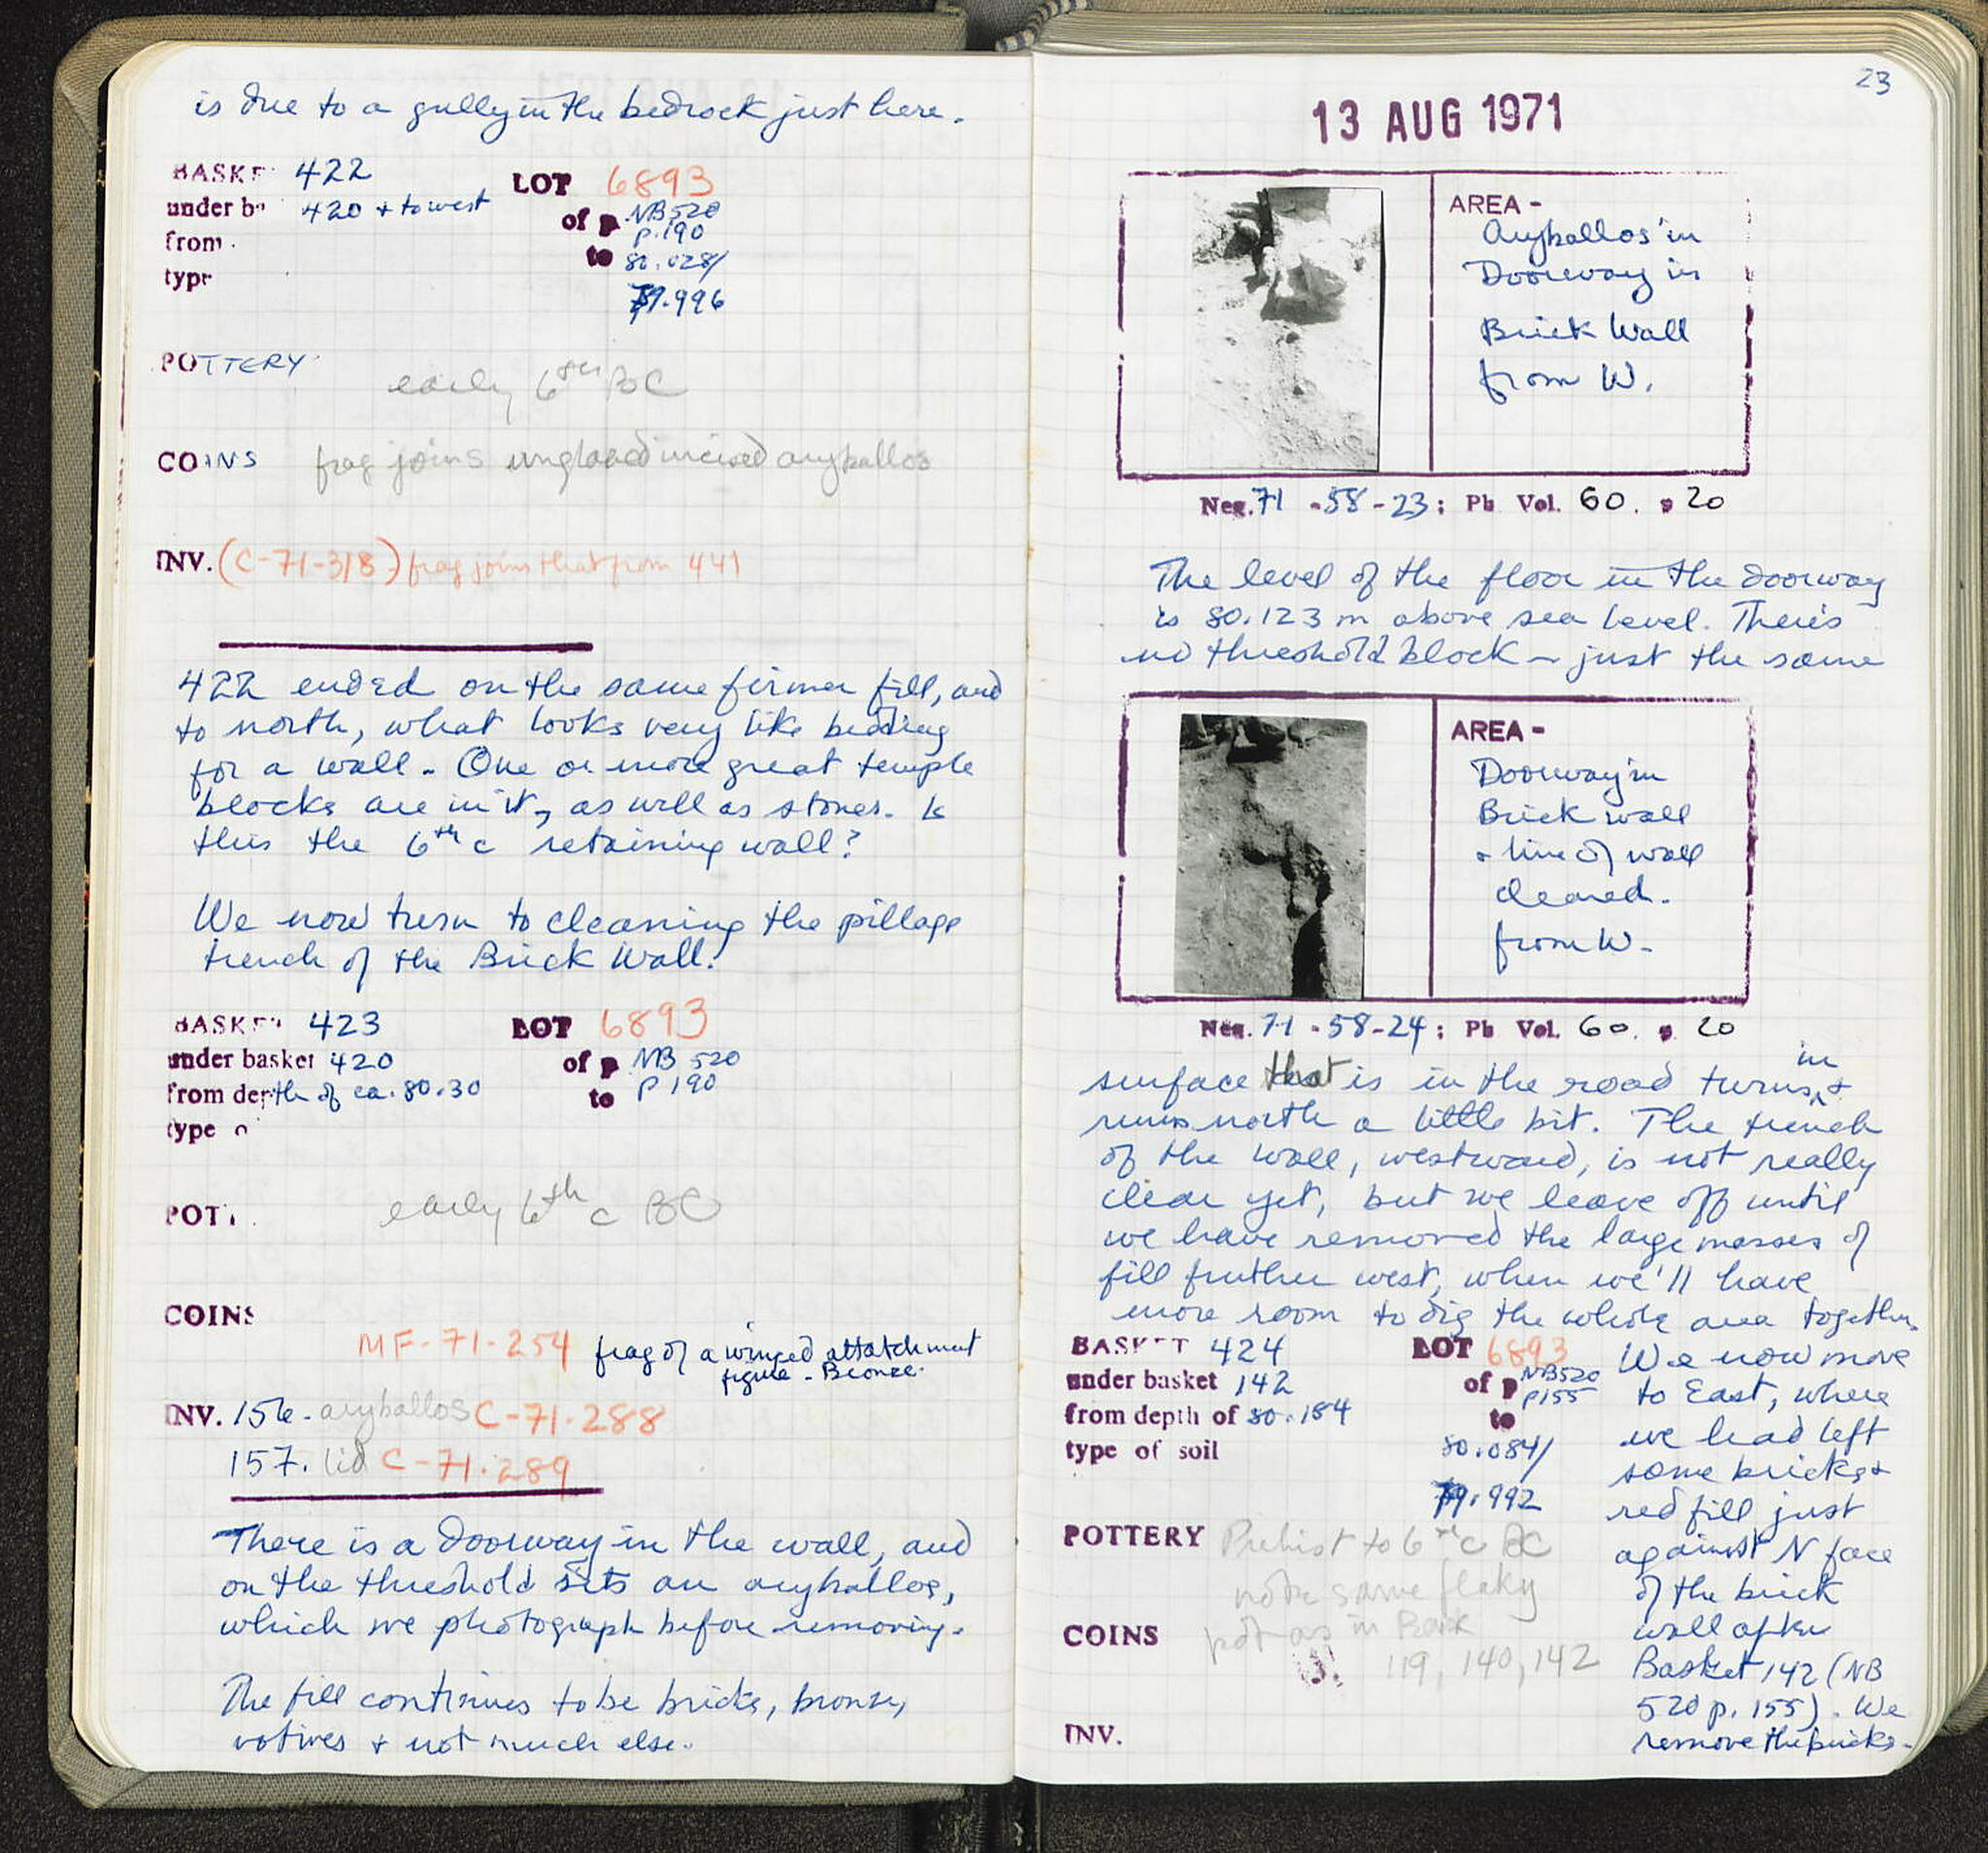 is due to a gully in the bedrock just here.
BASKE 422
under b 420 + to west
from
type
LOT 6893
of p NB 520
p. 190
to 80.028/
79.996
POTTERY
early 6th BC
COINS frag joins unglazed incised aryballos
INV. (C-71-318) frag joins that from 441
422 ended on the same firmer fill, and
to north, what looks very like bedding
for a wall. One or more great temple
blocks are in it, as well as stones. Is
this the 6th c retaining wall?
We now turn to cleaning the pillage
trench of the Brick Wall.
BASKET 423
under basket 420
from depth of ca. 80.30
type o
LOT 6893
of p NB 520
to p 190
POTT
early 6th c BC
COINS
MF-71-254 frag of a winged attatchment
figure - Bronze.
INV. 156. aryballos C-71-288
157. lid C-71-289
There is a doorway in the wall, and
on the threshold sits an aryballos,
which we photograph before removing.
The fill continues to be bricks, bronze,
votives + not much else.
23
13 AUG 1971
AREA -
Aryballos in
Doorway in
Brick Wall
from W.
Neg. 71 - 58 - 23; Ph Vol. 60. p 20
The level of the floor in the doorway
is 80.123 m above sea level. There's
no threshold block - just the same
AREA -
Doorway in
Brick wall
+ line of wall
cleared.
from W-
Neg. 71 - 58 - 24; Ph Vol. 60. p 20
surface that is in the road turns in, +
runs north a little bit. The trench
of the wall, westward, is not really
clear yet, but we leave off until
we have removed the large masses of
fill further west, when we'll have
more room to dig the whole area together.
BASKET 424
under basket 142
from depth of 80.184
type of soil
LOT 6893
of p NB520
p155
to
80.084/
79.992
POTTERY Prehist to 6th c BC
note same flaky
pot as in Bask
119, 140, 142
COINS
INV.
We now move
to East, where
we had left
some bricks +
red fill just
against N face
of the brick
wall after
Basket 142 (NB
520 p. 155). We
remove the bricks.